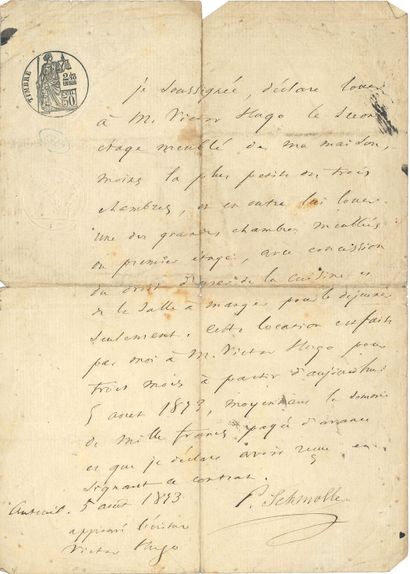 TIMBRE
50
je soussignée, déclare louer
à M. Victor Hugo le second
étage meublé de ma maison,
moins la plus petite des trois
chambres, et en outre lui louer
une des grandes chambres meublées
au premier étage, avec concession
du droit d'usage de la cuisine et
de la salle à manger pour le déjeuner
seulement. cette location est faite
par moi à M. Victor Hugo pour
trois mois à partir d'aujourd'hui
5 aout 1873, moyennant la somme
de mille francs payée d'avance
et que je déclare avoir reçue en
signant ce contrat.
Auteuil. 5 août 1873
P.
approuvé l'écriture
Victor Hugo